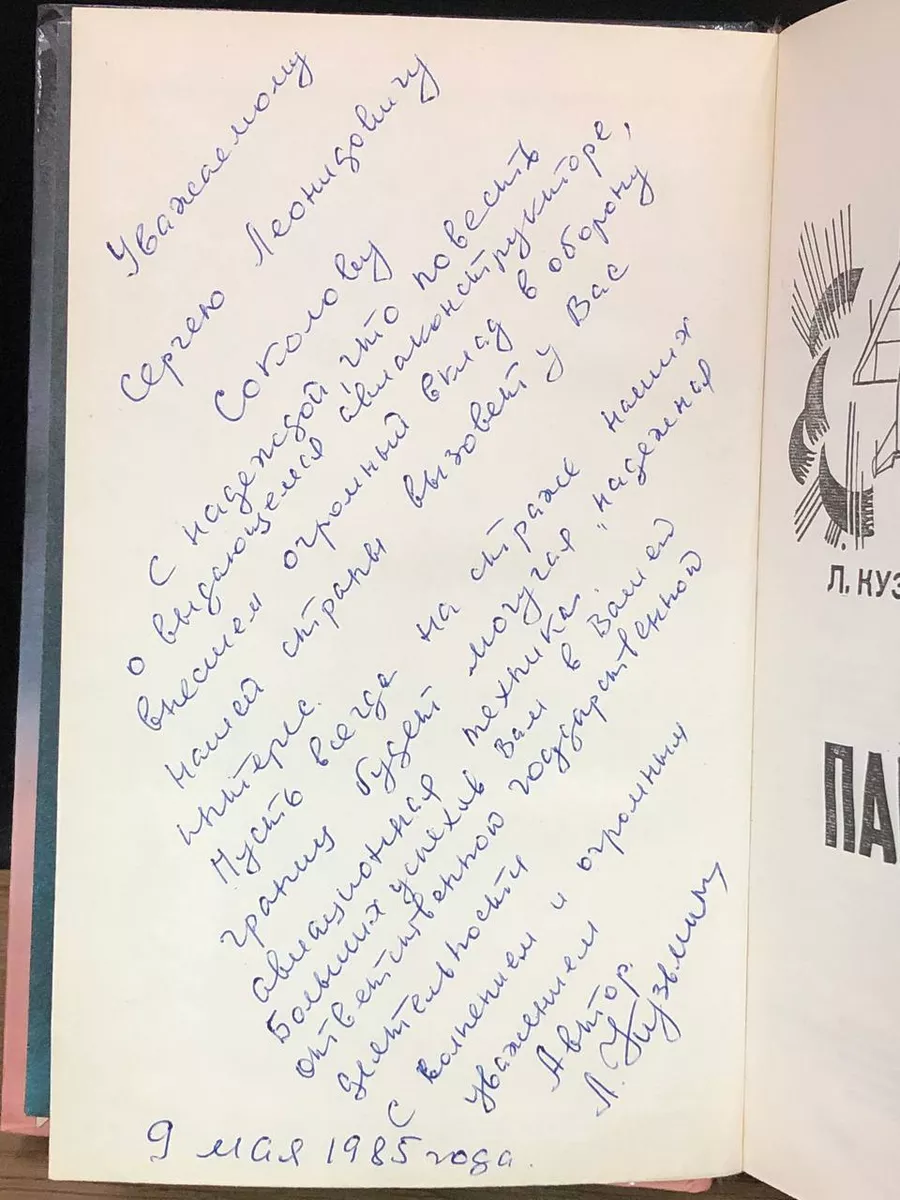 Уважаемому
Сергею Леонидовичу
Соколову
С надеждой что повесть
о выдающемся авиаконструкторе,
внесшем огромный вклад в оборону
нашей страны вызовет у Вас
интерес.
Пусть всегда на страже наших
границ будет могучая, надежная
авиационная техника.
Больших успехов Вам в Вашей
ответственной государственной
деятельности
С волнением и огромным
уважением
Автор.
Л. Кузьмина
9 мая 1985 года.
Л. КУЗ
ПА